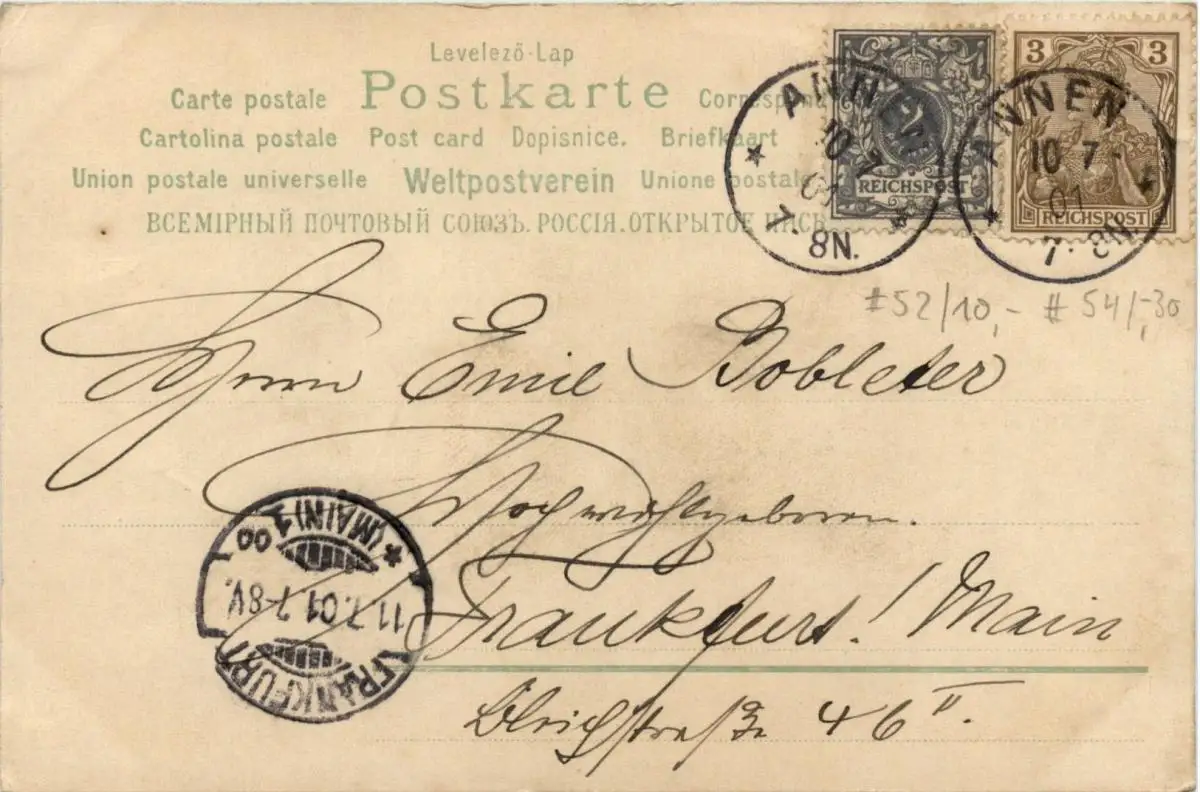 Levelező-Lap
Carte postale Postkarte Correspond
Cartolina postale Post card Dopisnice. Briefkaart
Union postale universelle Weltpostverein Unione postale
ВСЕМІРНЫЙ ПОЧТОВЫЙ СОЮЗЪ. РОССІЯ. ОТКРЫТОЕ ПИСЬ
2
REICHSPOST
3 3
REICHSPOST
ANNEN
10 7
01
7-8N.
ANNEN
10 7
01
7-8N.
#52/10,- #54/-,30
Herrn Emil Bobleter
Hochwohlgeboren.
Frankfurt / Main
Bleichstraße 46 II.
FRANKFURT
11.7.01 7-8V.
*(MAIN) 1
00